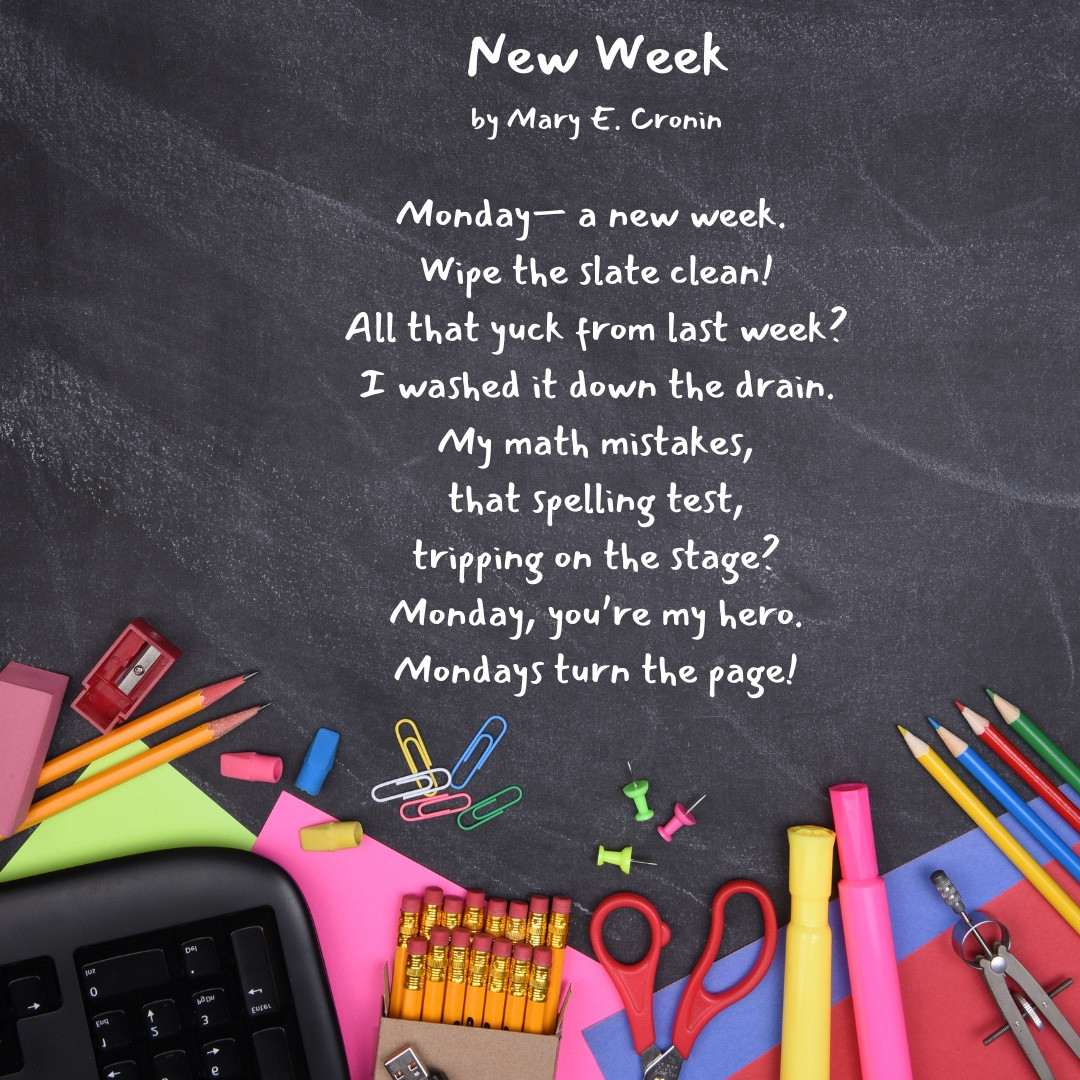 New Week
by Mary E. Cronin
Monday— a new week.
Wipe the slate clean!
All that yuck from last week?
I washed it down the drain.
My math mistakes,
that spelling test,
tripping on the stage?
Monday, you're my hero.
Mondays turn the page!
Ins
0
Del
.
Enter
End
1
2
PgDn
3